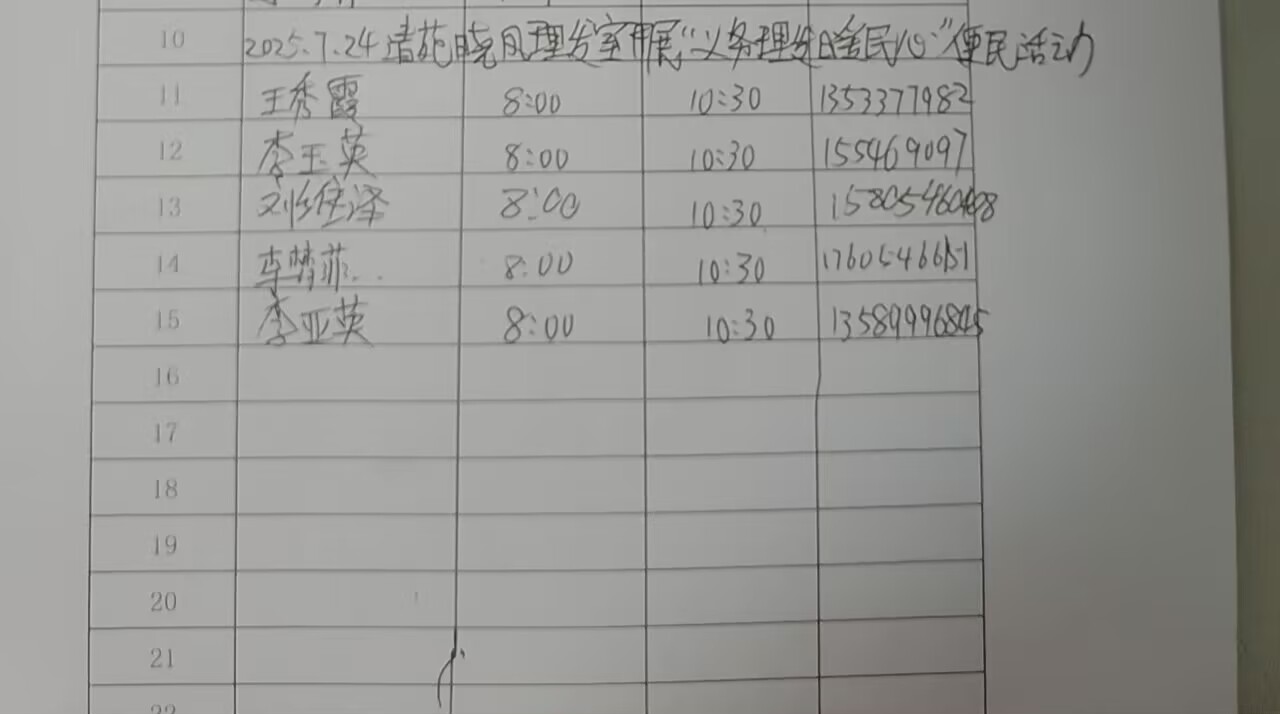 10 2025.7.24清苑晓风理发室开展“义务理发日 全民心”便民活动
11 王秀霞 8:00 10:30 1353377982
12 李玉英 8:00 10:30 155469097
13 刘维泽 8:00 10:30
14 李梦菲 8:00 10:30
15 李亚英 8:00 10:30 13589996845
16
17
18
19
20
21
22